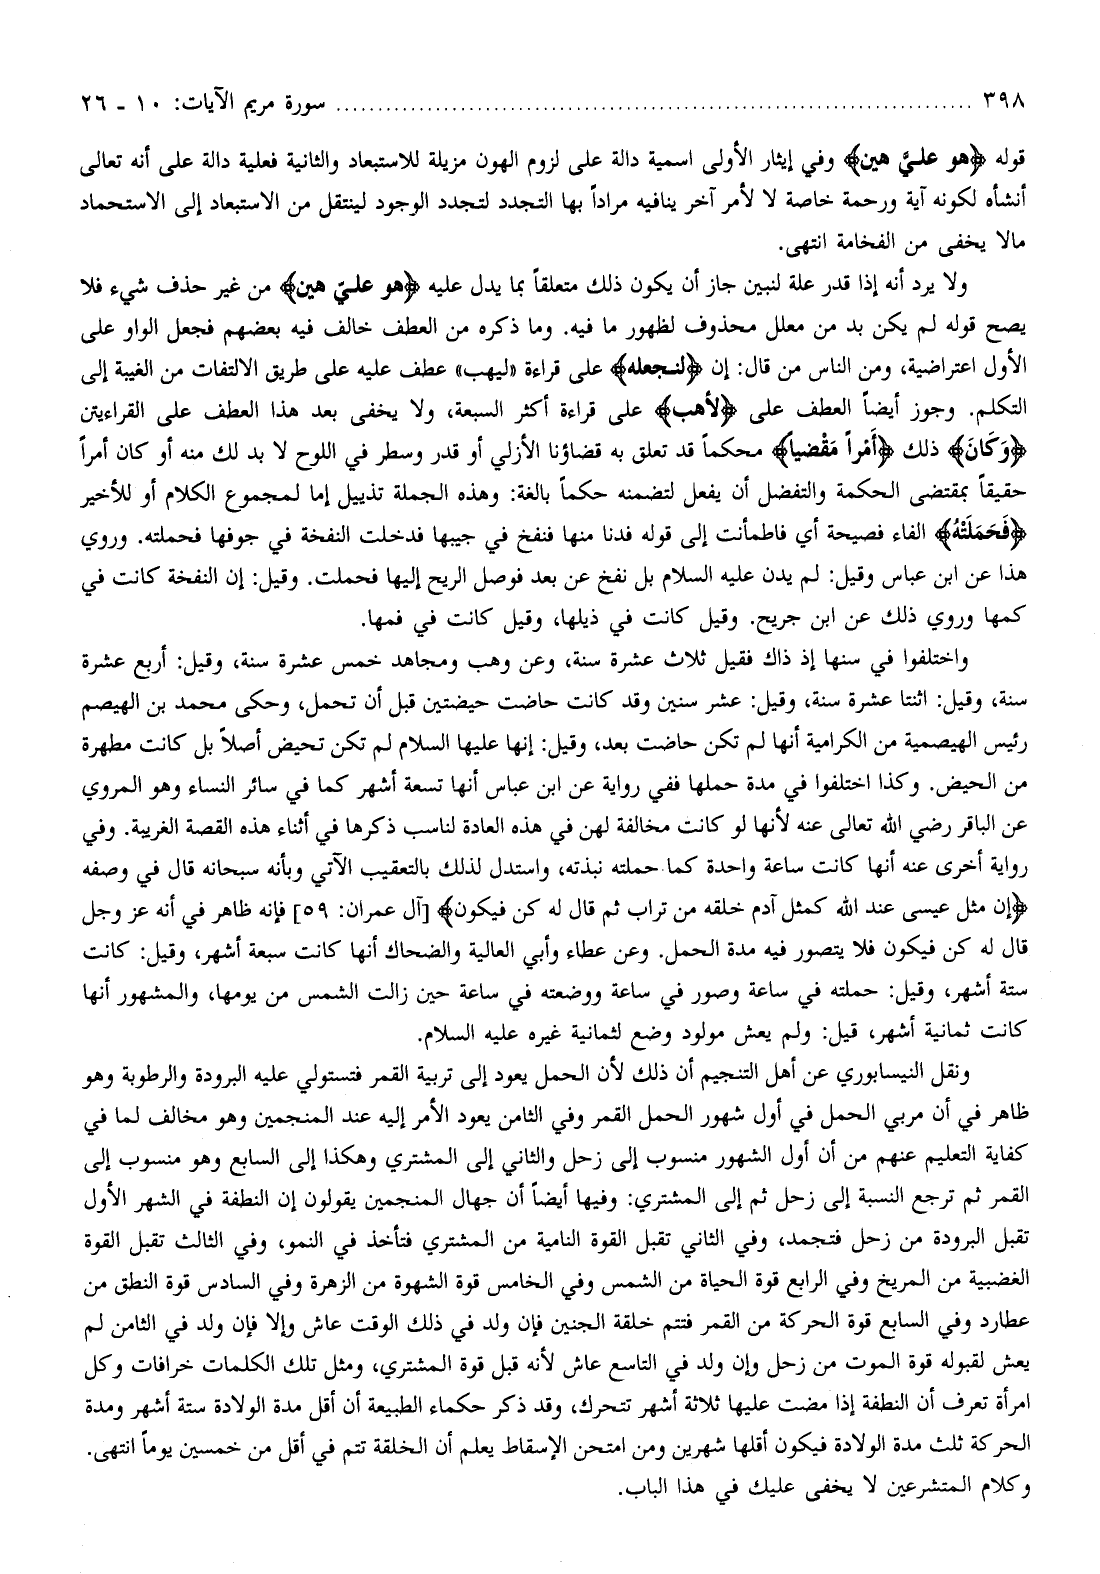 ٣٩٨ ........................................ سورة مريم الآيات: ١٠ ـ ٢٦
قوله ﴿هو عليَّ هين﴾ وفي إيثار الأولى اسمية دالة على لزوم الهون مزيلة للاستبعاد والثانية فعلية دالة على أنه تعالى
أنشأه لكونه آية ورحمة خاصة لا لأمر آخر ينافيه مراداً بها التجدد لتجدد الوجود لينتقل من الاستبعاد إلى الاستحماد
مالا يخفى من الفخامة انتهى.
ولا يرد أنه إذا قدر علة لنبين جاز أن يكون ذلك متعلقاً بما يدل عليه ﴿هو عليّ هين﴾ من غير حذف شيء فلا
يصح قوله لم يكن بد من معلل محذوف لظهور ما فيه. وما ذكره من العطف خالف فيه بعضهم فجعل الواو على
الأول اعتراضية، ومن الناس من قال: إن ﴿لنجعله﴾ على قراءة «ليهب» عطف عليه على طريق الالتفات من الغيبة إلى
التكلم. وجوز أيضاً العطف على ﴿لأهب﴾ على قراءة أكثر السبعة، ولا يخفى بعد هذا العطف على القراءيتن
﴿وَكَانَ﴾ ذلك ﴿أَمْراً مَقْضياً﴾ محكماً قد تعلق به قضاؤنا الأزلي أو قدر وسطر في اللوح لا بد لك منه أو كان أمراً
حقيقاً بمقتضى الحكمة والتفضل أن يفعل لتضمنه حكماً بالغة: وهذه الجملة تذييل إما لمجموع الكلام أو للأخير
﴿فَحَمَلَتْهُ﴾ الفاء فصيحة أي فاطمأنت إلى قوله فدنا منها فنفخ في جيبها فدخلت النفخة في جوفها فحملته. وروي
هذا عن ابن عباس وقيل: لم يدن عليه السلام بل نفخ عن بعد فوصل الريح إليها فحملت. وقيل: إن النفخة كانت في
كمها وروي ذلك عن ابن جريج. وقيل كانت في ذيلها، وقيل كانت في فمها.
واختلفوا في سنها إذ ذاك فقيل ثلاث عشرة سنة، وعن وهب ومجاهد خمس عشرة سنة، وقيل: أربع عشرة
سنة، وقيل: اثنتا عشرة سنة، وقيل: عشر سنين وقد كانت حاضت حيضتين قبل أن تحمل، وحكى محمد بن الهيصم
رئيس الهيصمية من الكرامية أنها لم تكن حاضت بعد، وقيل: إنها عليها السلام لم تكن تحيض أصلاً بل كانت مطهرة
من الحيض. وكذا اختلفوا في مدة حملها ففي رواية عن ابن عباس أنها تسعة أشهر كما في سائر النساء وهو المروي
عن الباقر رضي الله تعالى عنه لأنها لو كانت مخالفة لهن في هذه العادة لناسب ذكرها في أثناء هذه القصة الغريبة. وفي
رواية أخرى عنه أنها كانت ساعة واحدة كما حملته نبذته، واستدل لذلك بالتعقيب الآتي وبأنه سبحانه قال في وصفه
﴿إن مثل عيسى عند الله كمثل آدم خلقه من تراب ثم قال له كن فيكون﴾ [آل عمران: ٥٩] فإنه ظاهر في أنه عز وجل
قال له كن فيكون فلا يتصور فيه مدة الحمل. وعن عطاء وأبي العالية والضحاك أنها كانت سبعة أشهر، وقيل: كانت
ستة أشهر، وقيل: حملته في ساعة وصور في ساعة ووضعته في ساعة حين زالت الشمس من يومها، والمشهور أنها
كانت ثمانية أشهر، قيل: ولم يعش مولود وضع لثمانية غيره عليه السلام.
ونقل النيسابوري عن أهل التنجيم أن ذلك لأن الحمل يعود إلى تربية القمر فتستولي عليه البرودة والرطوبة وهو
ظاهر في أن مربي الحمل في أول شهور الحمل القمر وفي الثامن يعود الأمر إليه عند المنجمين وهو مخالف لما في
كفاية التعليم عنهم من أن أول الشهور منسوب إلى زحل والثاني إلى المشتري وهكذا إلى السابع وهو منسوب إلى
القمر ثم ترجع النسبة إلى زحل ثم إلى المشتري: وفيها أيضاً أن جهال المنجمين يقولون إن النطفة في الشهر الأول
تقبل البرودة من زحل فتجمد، وفي الثاني تقبل القوة النامية من المشتري فتأخذ في النمو، وفي الثالث تقبل القوة
الغضبية من المريخ وفي الرابع قوة الحياة من الشمس وفي الخامس قوة الشهوة من الزهرة وفي السادس قوة النطق من
عطارد وفي السابع قوة الحركة من القمر فتتم خلقة الجنين فإن ولد في ذلك الوقت عاش وإلا فإن ولد في الثامن لم
يعش لقبوله قوة الموت من زحل وإن ولد في التاسع عاش لأنه قبل قوة المشتري، ومثل تلك الكلمات خرافات وكل
امرأة تعرف أن النطفة إذا مضت عليها ثلاثة أشهر تتحرك، وقد ذكر حكماء الطبيعة أن أقل مدة الولادة ستة أشهر ومدة
الحركة ثلث مدة الولادة فيكون أقلها شهرين ومن امتحن الإسقاط يعلم أن الخلقة تتم في أقل من خمسين يوماً انتهى.
وكلام المتشرعين لا يخفى عليك في هذا الباب.